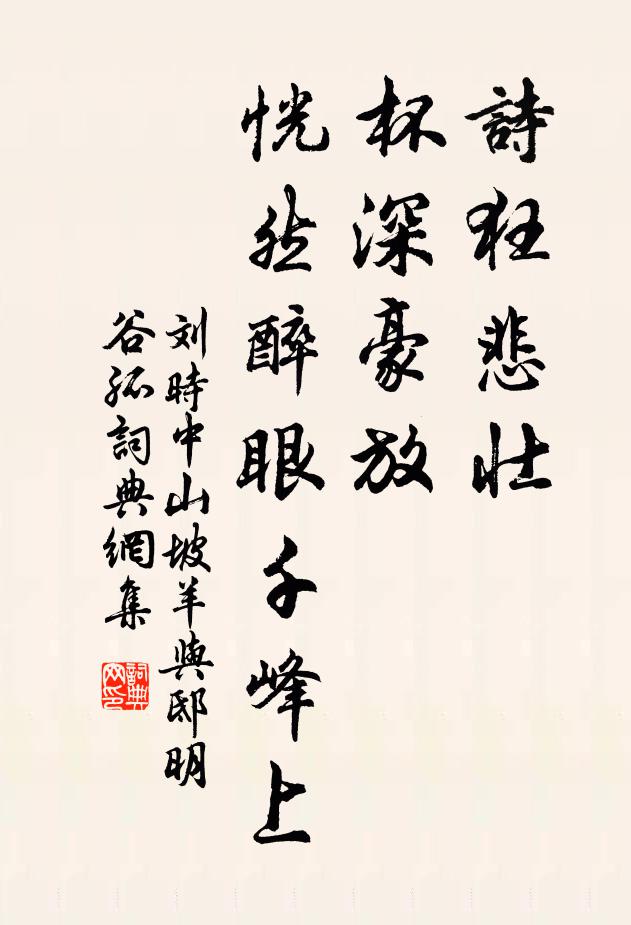 詩狂悲壯
杯深豪放
恍然醉眼千峰上
刘時中山坡羊與邸明
谷孤詞典網集
詞典网印